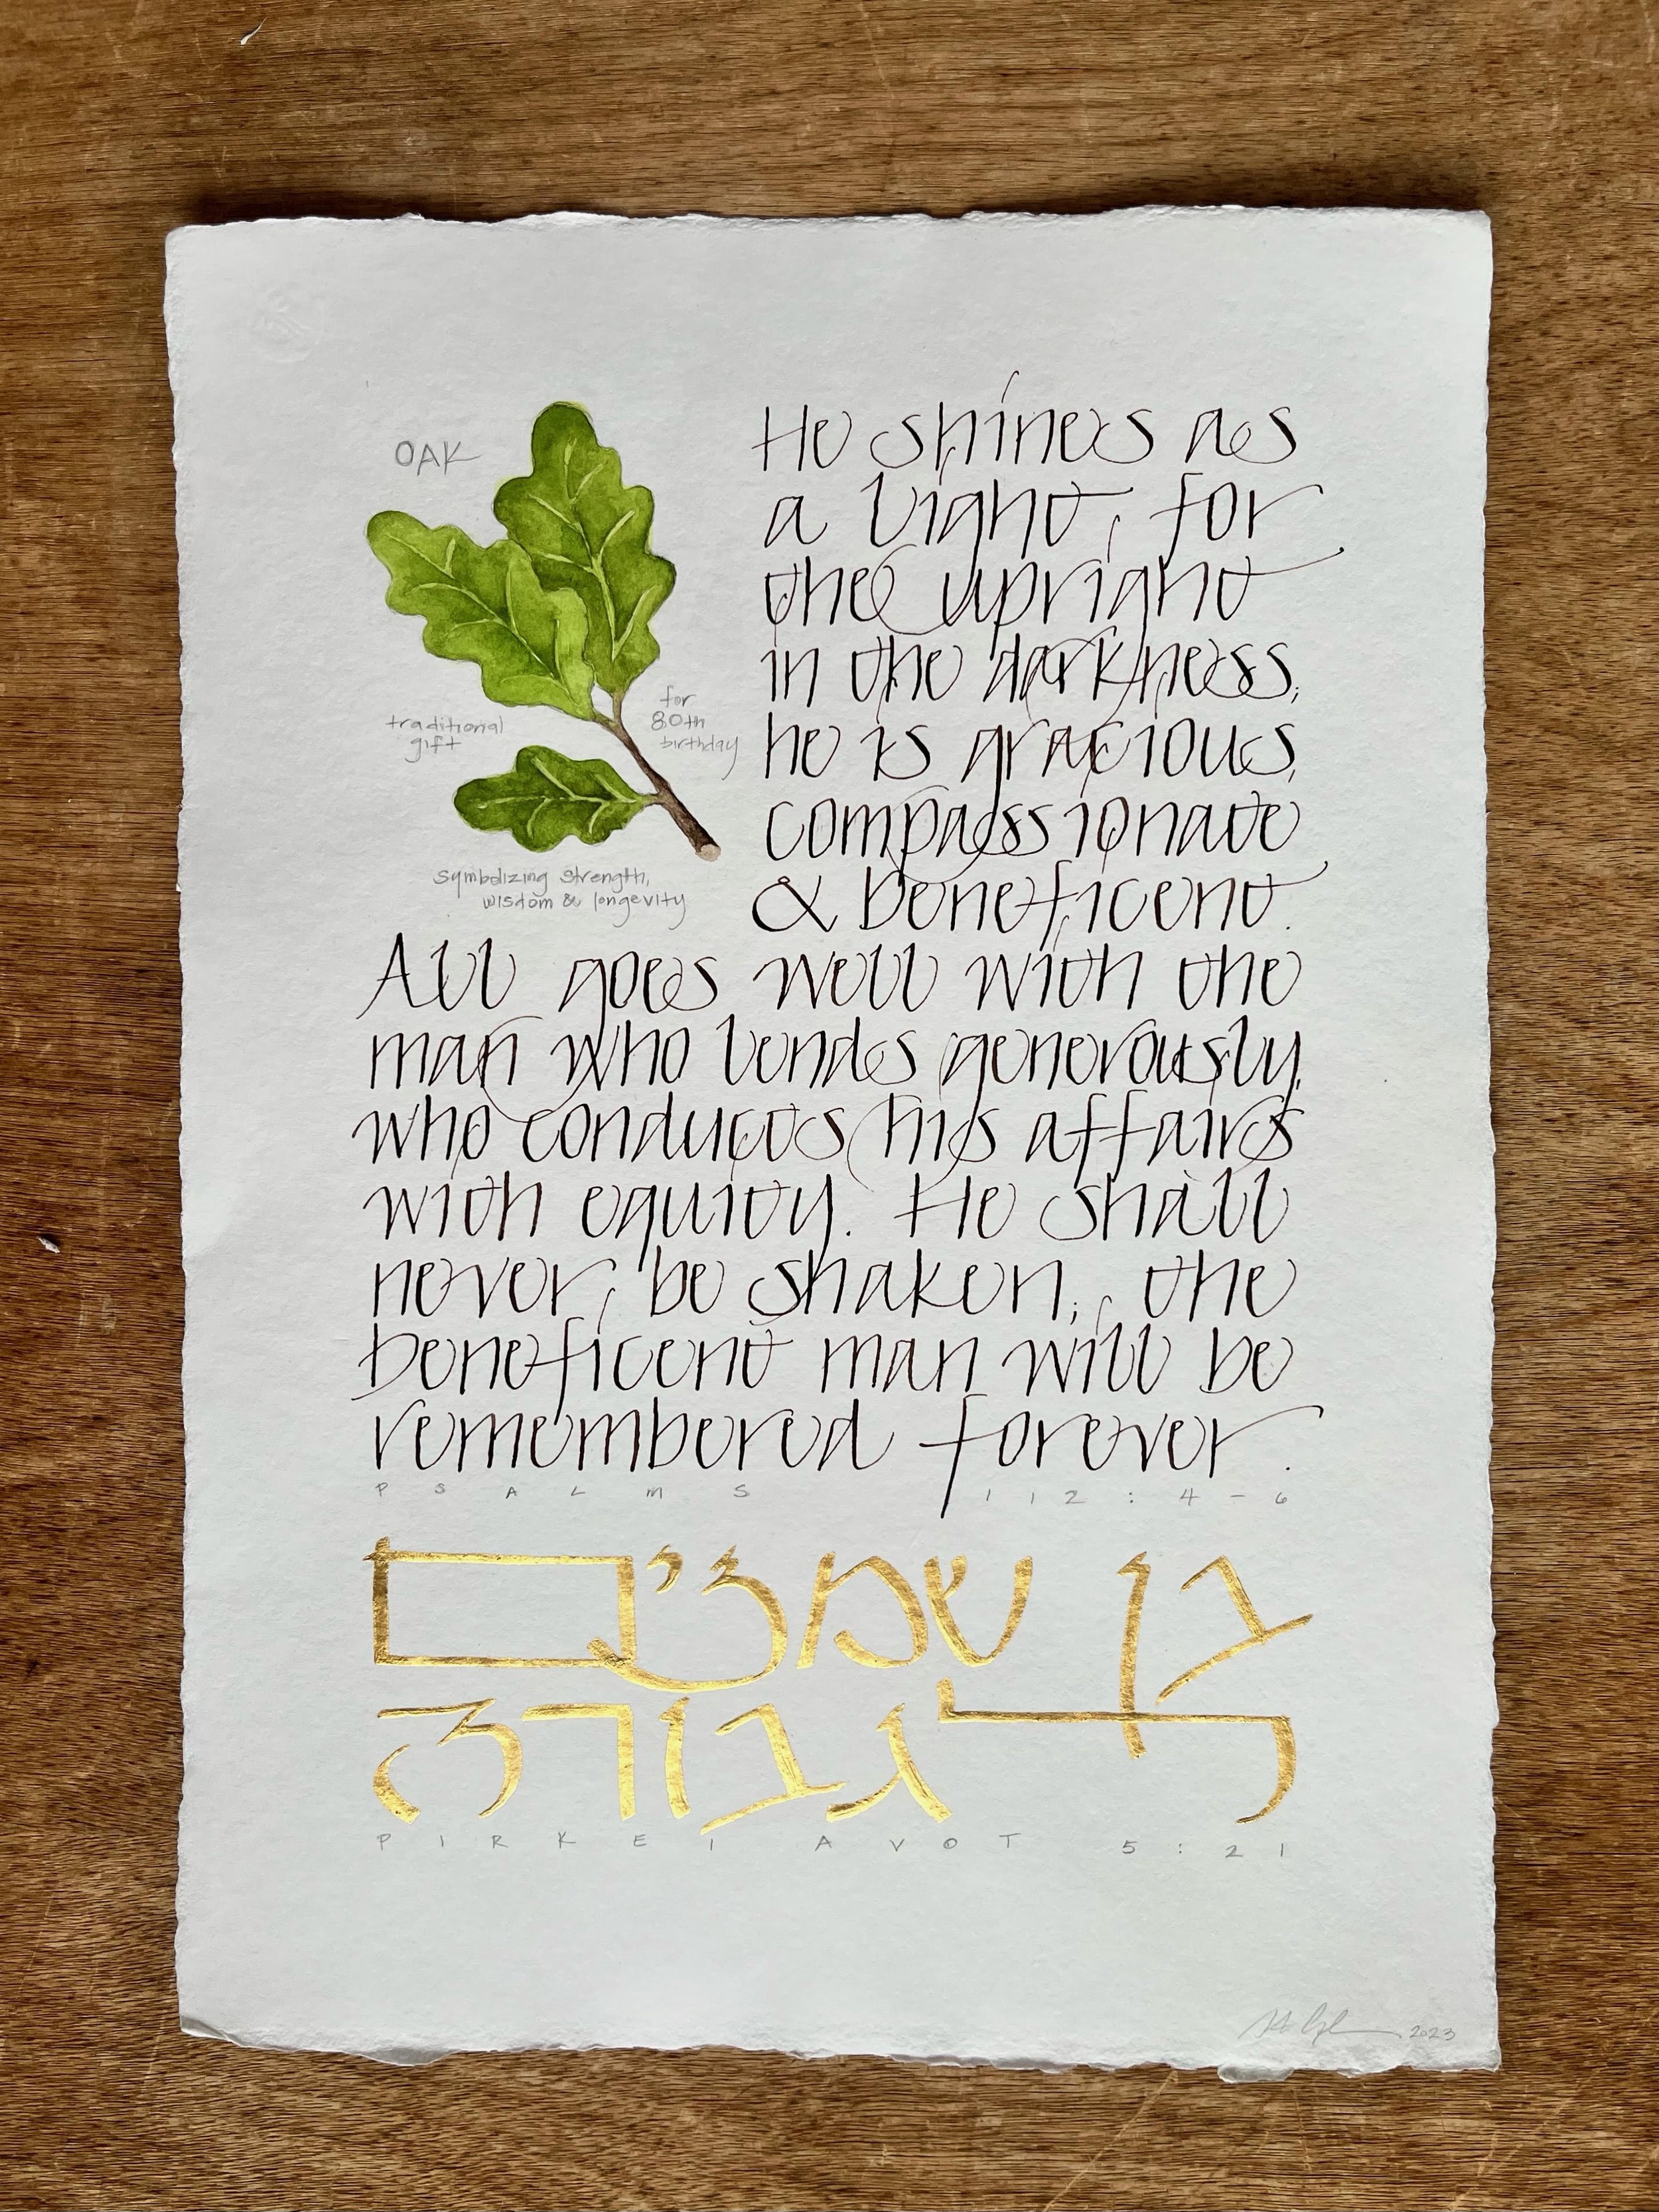 OAK
traditional
gift
for
80th
birthday
symbolizing strength,
wisdom & longevity
He shines as
a light, for
the upright
in the darkness,
he is gracious,
compassionate
& beneficent.
All goes well with the
man who lends generously,
who conducts his affairs
with equity. He shall
never be shaken, the
beneficent man will be
remembered forever.
PSALMS 112:4-6
בן שמנים
לגבורה
PIRKEI AVOT 5:21
2023